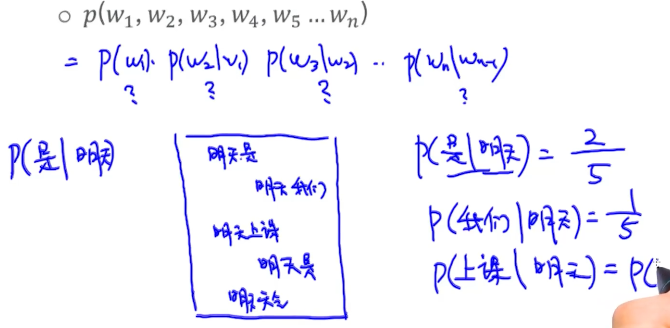 ○ p(w₁, w₂, w₃, w₄, w₅ … wₙ)
= p(w₁)· p(w₂|w₁) p(w₃|w₂) ·· p(wₙ|wₙ₋₁)
? ? ? ?
p(是|明天)
明天是
明天我们
明天上课
明天是
明天会
p(是|明天) = 2/5
p(我们|明天) = 1/5
p(上课|明天) = p(